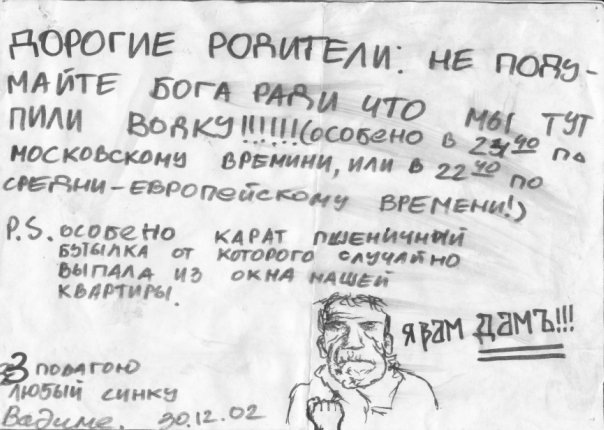 ДОРОГИЕ РОДИТЕЛИ: НЕ ПОДУ-
МАЙТЕ БОГА РАДИ ЧТО МЫ ТУТ
ПИЛИ ВОДКУ!!!!!!(ОСОБЕНО В 23 40 ПО
МОСКОВСКОМУ ВРЕМИНИ, ИЛИ В 22 40 ПО
СРЕДНИ-ЕВРОПЕЙСКОМУ ВРЕМЕНИ!)
P.S. ОСОБЕНО КАРАТ ПШЕНИЧНЫЙ
БУТЫЛКА ОТ КОТОРОГО СЛУЧАЙНО
ВЫПАЛА ИЗ ОКНА НАШЕЙ
КВАРТИРЫ.
Я ВАМ ДАМЪ!!!
З ПОВАГОЮ
ЛЮБЫЙ СИНКУ
Вадиме. 30.12.02